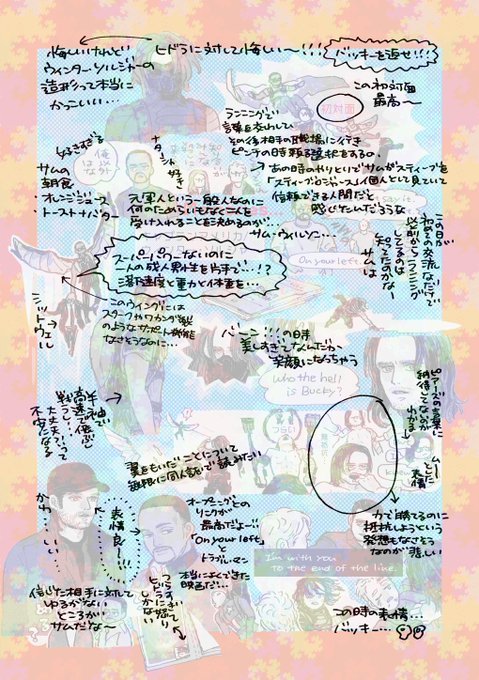 悔しいけれど
ウィンター・ソルジャーの
造形って本当に
かっこいい…
ヒドラに対して悔しい〜!!!
バッキーを返せ!!
この初対面
最高〜
初対面
ランニングで
言葉を交わして
その後相手の職場に行き
ピンチの時頼る選択をするの、
あの日のやりとりでサムがスティーブを
「スティーブ・ロジャース」個人として見ていて
信頼できる人間だと
感じたんだろうな
好きすぎる
サムの
朝食
オレンジジュース
トーストナバター
ナターシャ
好き
俺は
以外
元軍人という一般人なのに
何のためらいもなく二人を
受け入れることを決めるのが…
サム・ウィルソン…
この日が
初めての交流なだけで
以前からランニング
してるのは
知ってたのかな
サムは
On your left.
スーパーパワーないのに
一人の成人男性を片手で…!?
落下速度と重力と体重を…
シットウェル
このウイングには
スタークやワカンダ製
のようなサポート機能
なさそうなのに…
バーン!!!の日本
美しすぎてなんだか
笑顔になっちゃう
Who the hell
is Bucky?
ピアースの言葉に
納得してないのが
わかる
ムーとした
表情
半袖で
高速で飛ぶし
戦うし?って
大丈夫?って
不安になる
翼をもいだことについて
無限に同人誌で読みたい
力で勝てるのに
抵抗しようという
発想もなさそう
なのが悲しい
かわ…しい…
表情良〜!!!
オープニングとの
リンクが
最高だよー!!
「On your left」
と
トラブルマン
本当によくできた
映画だ!…
I'm with you
to the end of the line.
信じた相手に対して
ゆるがない
ところが
サムだな〜
この時の表情…
バッキー…